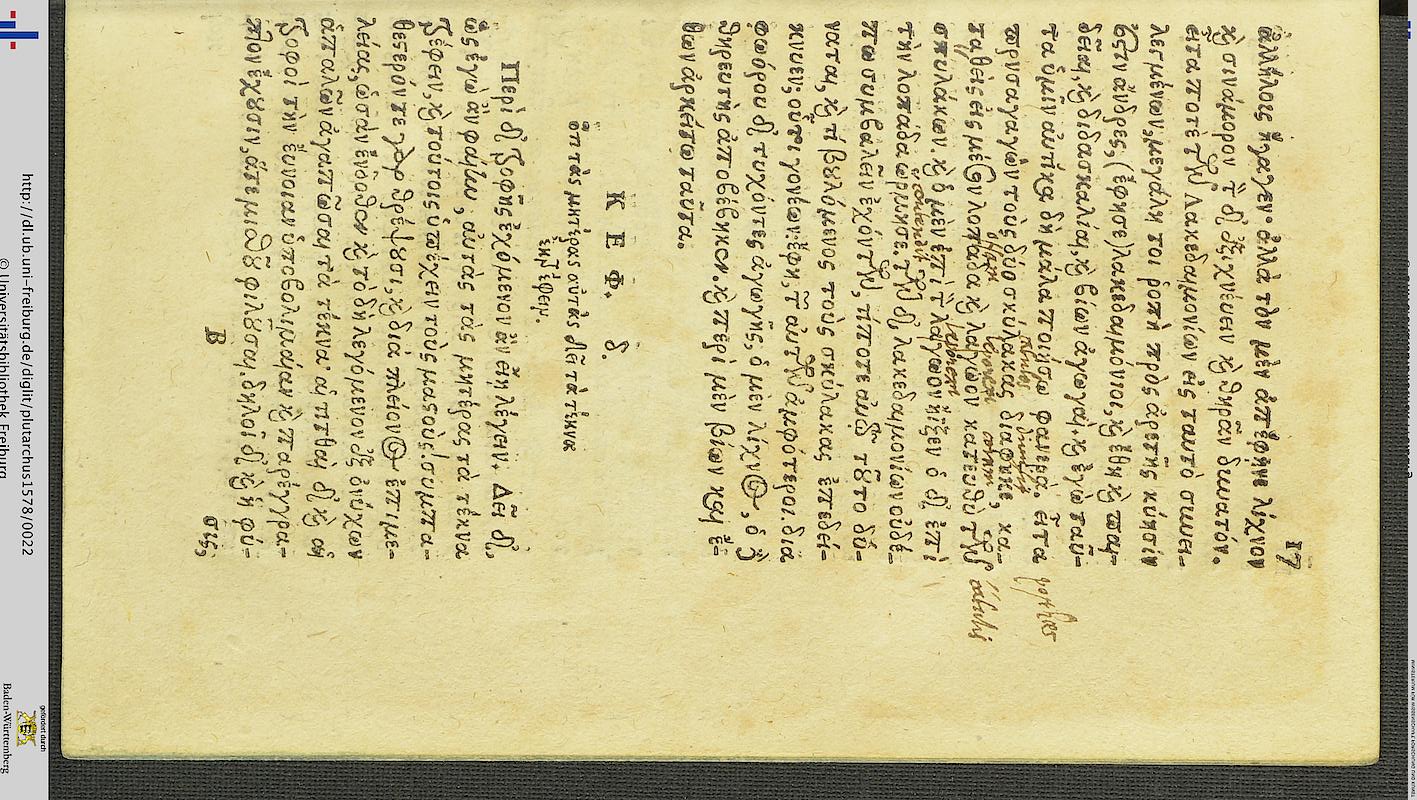 17
ἀλλήλοις ἤγαγεν· ἀλλὰ τὸν μὲν ἀπέφηνε λίχνον
καὶ σινάμορον τὸν δὲ ἐξιχνεύειν καὶ θηρᾶν δυνατόν.
εἶτά ποτε τῶν λακεδαιμονίων εἰς ταυτὸ συνει-
λεγμένων, μεγάλη τοι ῥοπὴ πρὸς ἀρετῆς κτῆσίν
ἐστιν ἄνδρες, (ἔφησε) λακεδαιμόνιοι, καὶ ἔθη καὶ παι-
δεῖαι, καὶ διδασκαλίαι, καὶ βίων ἀγωγαί. καὶ ἐγὼ ταῦ-
τα ὑμῖν αὐτίκα δὴ μάλα ποιήσω φανερά. εἶτα
προσαγαγὼν τοὺς δύο σκύλακας διαφῆκε, κα-
ταθεὶς εἰς μέσον λοπάδα καὶ λαγωὸν κατευθὺ τῶν
σκυλάκων. καὶ ὁ μὲν ἐπὶ τὸν λαγωὸν ᾖξεν ὁ δὲ ἐπὶ
τὴν λοπάδα ὥρμησε. τῶν δὲ λακεδαιμονίων οὐδέ-
πω συμβαλεῖν ἐχόντων, τί ποτε αὐτῷ τοῦτο δύ-
ναται, καὶ τί βουλόμενος τοὺς σκύλακας ἐπεδεί-
κνυεν; οὗτοι γονέων ἔφη, τῶν αὐτῶν ἀμφότεροι. δια
φόρου δὲ τυχόντες ἀγωγῆς, ὁ μὲν λίχνος, ὁ δὲ
θηρευτὴς ἀποβέβηκεν. καὶ περὶ μὲν βίων καὶ ἐ-
θῶν ἀρκείτω ταῦτα.
ΚΕΦ. δ.
ὅτι τὰς μητέρας αὐτὰς δεῖ τὰ τέκνα
ἐκτρέφειν.
Περὶ δὲ τροφῆς ἐχόμενον ἂν εἴη λέγειν. Δεῖ δὲ
ὡς ἐγὼ ἂν φαίην, αὐτὰς τὰς μητέρας τὰ τέκνα
τρέφειν, καὶ τούτοις ὑπέχειν τοὺς μαστούς. συμπα-
θέστερόν τε γὰρ θρέψουσι, καὶ διὰ πλείονος ἐπιμε-
λείας, ὡς ἂν ἔνδοθεν καὶ τὸ δὴ λεγόμενον ἐξ ὀνύχων
ἁπαλῶν ἀγαπῶσαι τὰ τέκνα· αἱ τίτθαι δὲ καὶ αἱ
τροφοὶ τὴν εὔνοιαν ὑποβολιμαίαν καὶ παρέγγρα-
πτον ἔχουσιν, ἅτε μισθοῦ φιλοῦσαι. δηλοῖ δὲ καὶ ἡ φύ-
B
σις,
http://dl.ub.uni-freiburg.de/diglit/plutarchus1578/0022
© Universitätsbibliothek Freiburg
gefördert durch
Baden-Württemberg